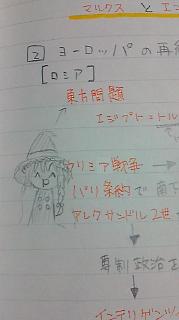 マルクス と エン
2 ヨーロッパの再編
[ロシア]
東方問題
エジプト=トル
クリミア戦争 →
パリ条約で 南下
アレクサンドル2世
専制政治
インテリゲンツィ